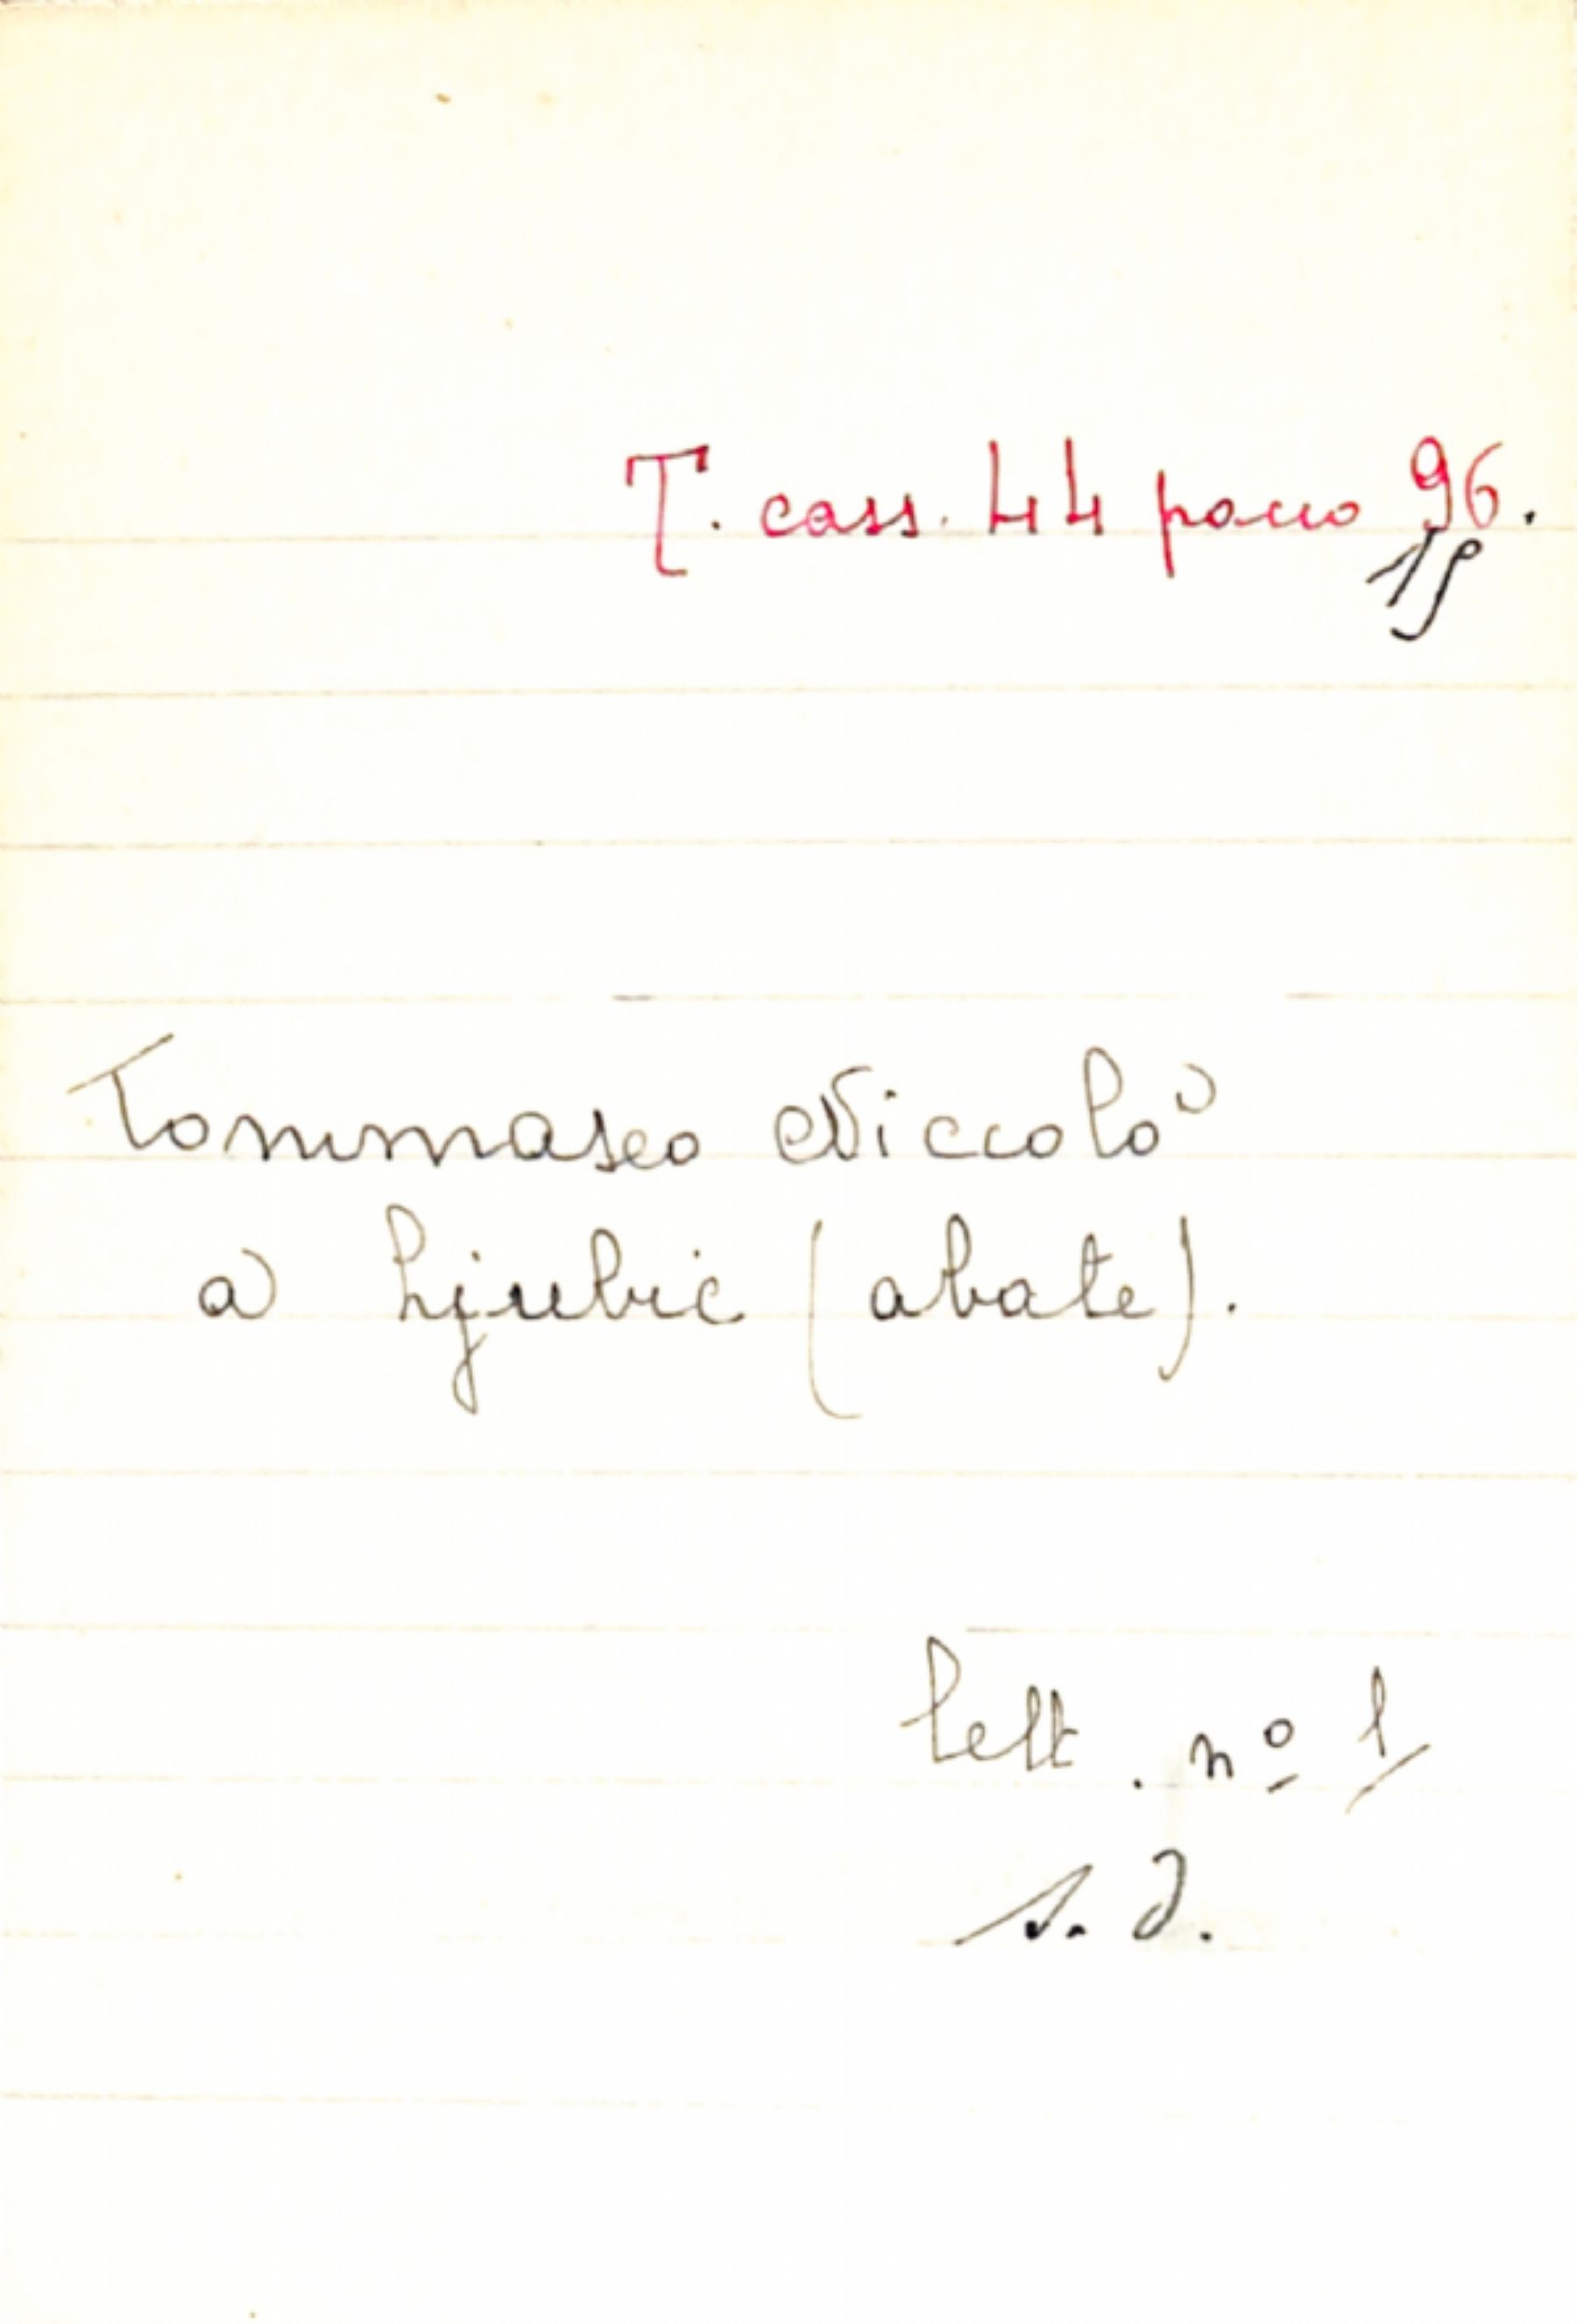 T. cass. 44 pacco 96.
15
Tommaseo Niccolò
a Ljubic (abate).
lett. nº 1
s. d.